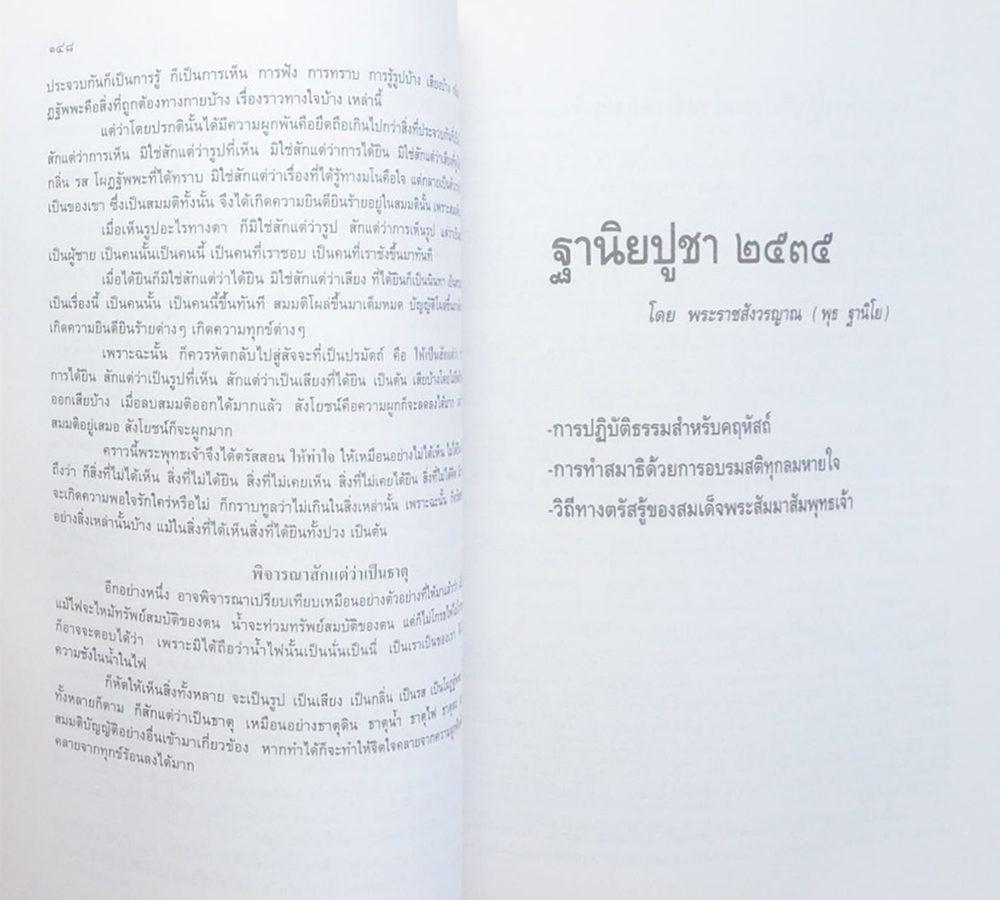 ๑๔๘
ประจวบกันก็เป็นการรู้ ก็เป็นการเห็น การฟัง การทราบ การรู้รูปบ้าง เสียงบ้าง
ฏฐัพพะคือสิ่งที่ถูกต้องทางกายบ้าง เรื่องราวทางใจบ้าง เหล่านี้
แต่ว่าโดยปรกตินั้นได้มีความผูกพันคือยึดถือเกินไปกว่าสิ่งที่ประจวบกัน
สักแต่ว่าการเห็น มิใช่สักแต่ว่ารูปที่เห็น มิใช่สักแต่ว่าการได้ยิน มิใช่สักแต่ว่าเสียง
กลิ่น รส โผฏฐัพพะที่ได้ทราบ มิใช่สักแต่ว่าเรื่องที่ได้รู้ทางมโนคือใจ แต่กลายเป็น
เป็นของเขา ซึ่งเป็นสมมติทั้งนั้น จึงได้เกิดความยินดียินร้ายอยู่ในสมมตินั้น เพราะ
เมื่อเห็นรูปอะไรทางตา ก็มิใช่สักแต่ว่ารูป สักแต่ว่าการเห็นรูป แต่ว่าเป็น
เป็นผู้ชาย เป็นคนนั้นเป็นคนนี้ เป็นคนที่เราชอบ เป็นคนที่เราชังขึ้นมาทันที
เมื่อได้ยินก็มิใช่สักแต่ว่าได้ยิน มิใช่สักแต่ว่าเสียง ที่ได้ยินก็เป็นนินทา
เป็นเรื่องนี้ เป็นคนนั้น เป็นคนนี้ขึ้นทันที สมมติโผล่ขึ้นมาเต็มหมด บัญญัติโผล่ขึ้น
เกิดความยินดียินร้ายต่างๆ เกิดความทุกข์ต่างๆ
เพราะฉะนั้น ก็ควรหัดกลับไปสู่สัจจะที่เป็นปรมัตถ์ คือ ให้เป็นสักแต่ว่า
การได้ยิน สักแต่ว่าเป็นรูปที่เห็น สักแต่ว่าเป็นเสียงที่ได้ยิน เป็นต้น เสียบ้างโดย
ออกเสียบ้าง เมื่อลบสมมติออกได้มากแล้ว สังโยชน์คือความผูกก็จะลดลงได้มาก
สมมติอยู่เสมอ สังโยชน์ก็จะผูกมาก
คราวนี้พระพุทธเจ้าจึงได้ตรัสสอน ให้ทำใจ ให้เหมือนอย่างไม่ได้เห็น
ถึงว่า ก็สิ่งที่ไม่ได้เห็น สิ่งที่ไม่ได้ยิน สิ่งที่ไม่เคยเห็น สิ่งที่ไม่เคยได้ยิน สิ่งที่ไม่ได้คิด
จะเกิดความพอใจรักใคร่หรือไม่ ก็กราบทูลว่าไม่เกินในสิ่งเหล่านั้น เพราะฉะนั้น
อย่างสิ่งเหล่านั้นบ้าง แม้ในสิ่งที่ได้เห็นสิ่งที่ได้ยินทั้งปวง เป็นต้น
พิจารณาสักแต่ว่าเป็นธาตุ
อีกอย่างหนึ่ง อาจพิจารณาเปรียบเทียบเหมือนอย่างตัวอย่างที่ให้มาแล้วว่า
แม้ไฟจะไหม้ทรัพย์สมบัติของตน น้ำจะท่วมทรัพย์สมบัติของตน แต่ก็ไม่โกรธ
ก็อาจจะตอบได้ว่า เพราะมิได้ถือว่าน้ำไฟนั้นเป็นนั่นเป็นนี่ เป็นเราเป็นของเรา
ความชังในน้ำในไฟ
ก็หัดให้เห็นสิ่งทั้งหลาย จะเป็นรูป เป็นเสียง เป็นกลิ่น เป็นรส
ทั้งหลายก็ตาม ก็สักแต่ว่าเป็นธาตุ เหมือนอย่างธาตุดิน ธาตุน้ำ ธาตุไฟ
สมมติบัญญัติอย่างอื่นเข้ามาเกี่ยวข้อง หากทำได้ก็จะทำให้จิตใจคลายจากความ
คลายจากทุกข์ร้อนลงได้มาก
ฐานิยปูชา ๒๕๓๕
โดย พระราชสังวรญาณ (พุธ ฐานิโย)
-การปฏิบัติธรรมสำหรับคฤหัสถ์
-การทำสมาธิด้วยการอบรมสติทุกลมหายใจ
-วิถีทางตรัสรู้ของสมเด็จพระสัมมาสัมพุทธเจ้า